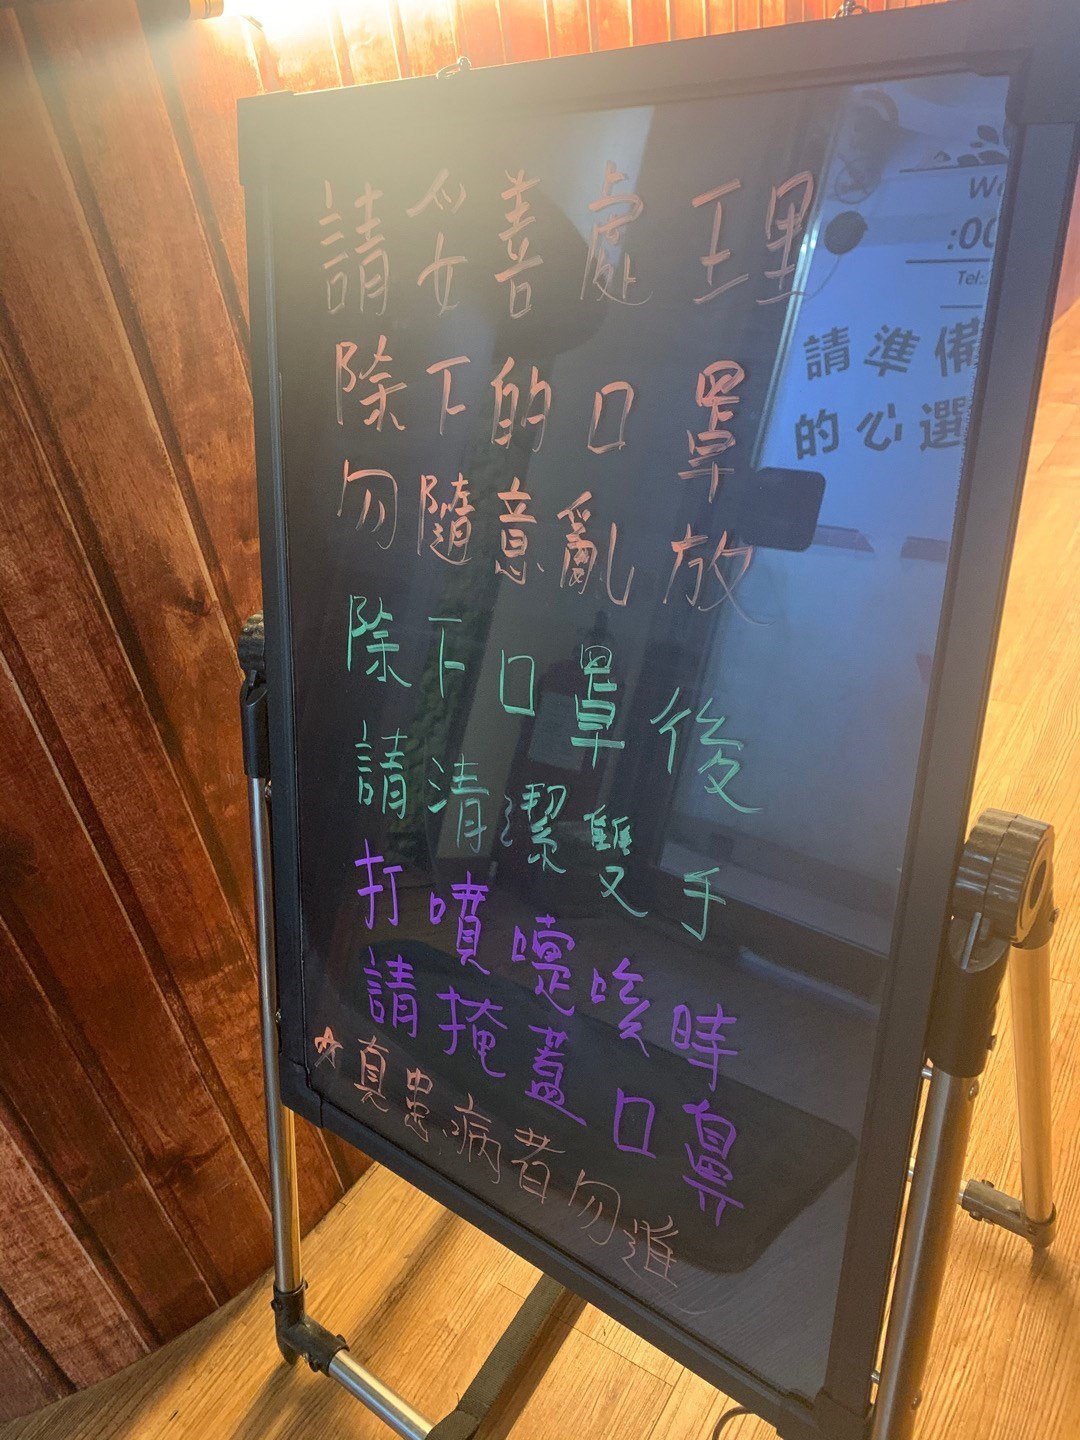 請妥善處理
除下的口罩
勿隨意亂放
除下口罩後
請清潔雙手
打噴嚏咳時
請掩蓋口鼻
☆真患病者勿進
We
:00
Tel:
請準備
的心選